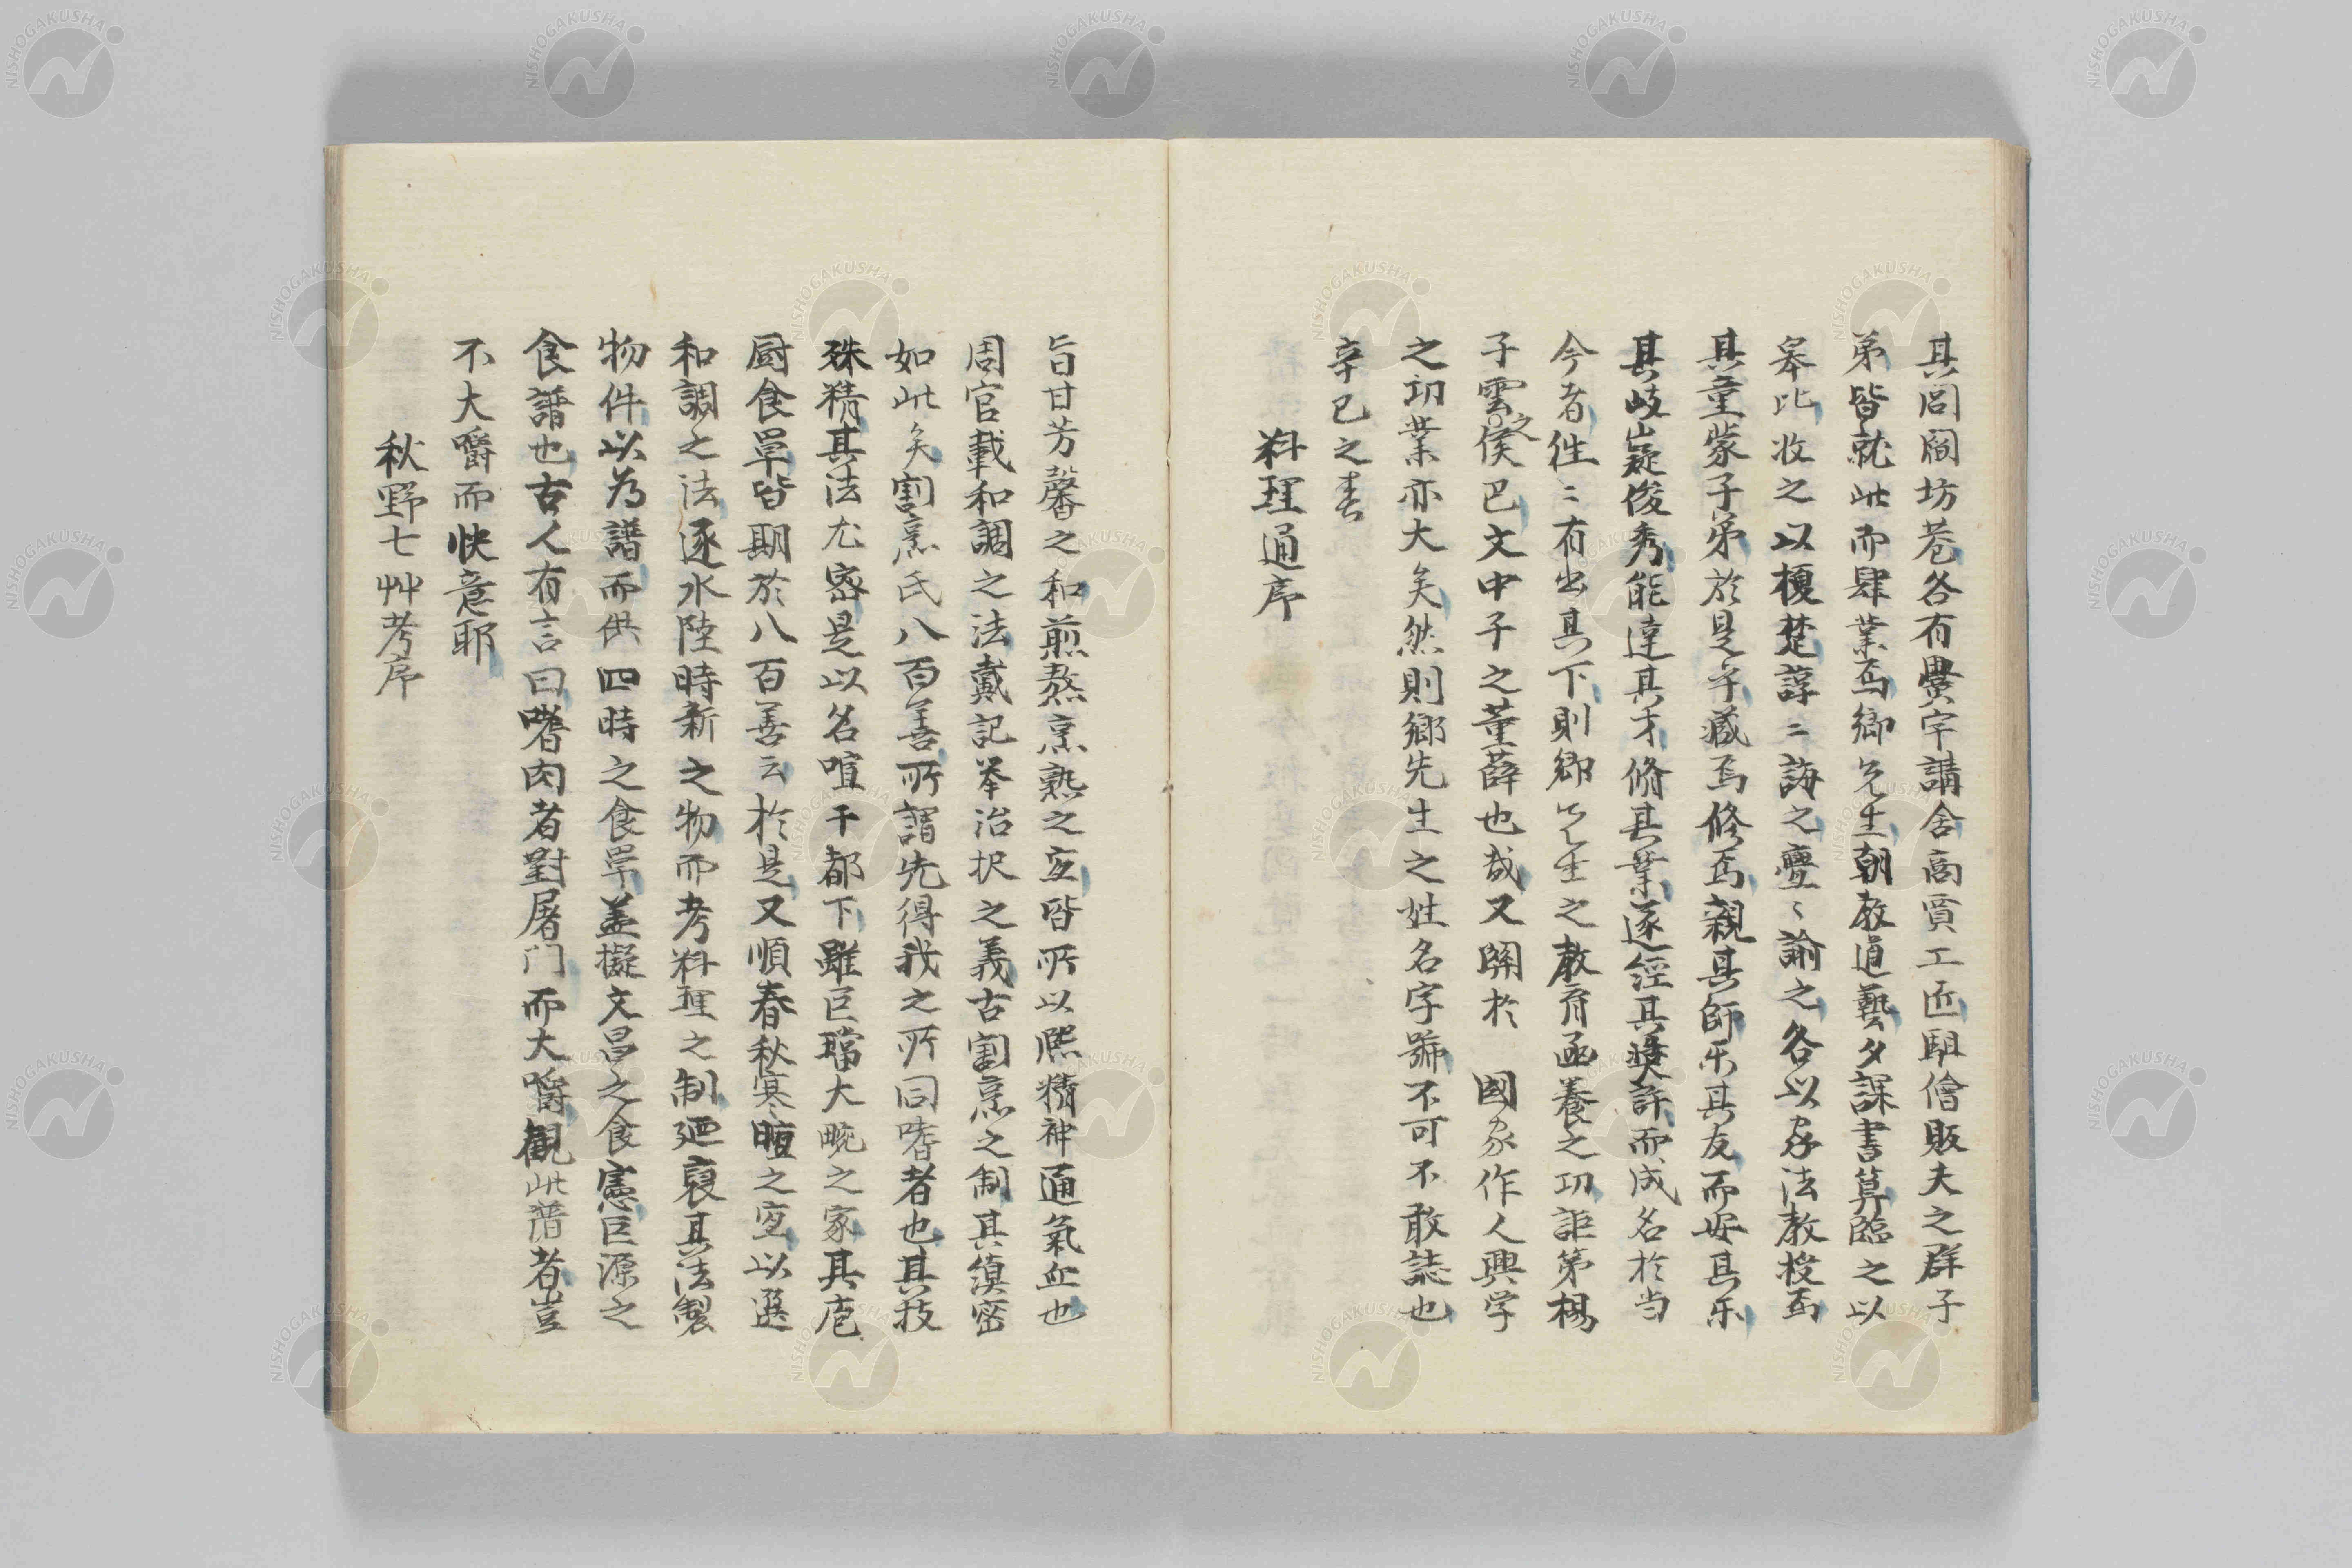 其閭閻坊巷各有黌宇講舍商賈工匠駔儈販夫之群子
弟皆就此而肆業焉鄉先生朝教道藝夕課書算臨之以
皋比收之以榎楚諄〻誨之亹〻諭之各以家法教授焉
其童蒙子弟於是乎藏焉修焉親其師乐其友而安其乐
其岐嶷俊秀能達其才脩其業逐經其奬許而成名於当
今者徃〻有出其下則鄉先生之教育函養之功詎第楊
子雲之侯巴文中子之董薛也哉又関於 國家作人興学
之功業亦大矣然則鄉先生之姓名字號不可不敢誌也
辛巳之春
料理通序
旨甘芳馨之和煎熬烹熟之宜皆所以熈精神通氣血也
周官載和調之法戴記举治択之義古割烹之制其縝密
如此矣割烹氏八百善所謂先得我之所同嗜者也其技
殊精其法尤密是以名喧于都下雖巨璫大畹之家其庖
厨食單皆期於八百善云於是又順春秋寒暄之宜以選
和調之法逐水陸時新之物而考料理之制廼裒其法製
物件以为譜而供四時之食單盖擬文昌之食憲巨源之
食譜也古人有言曰嗜肉者對屠门而大嚼観此譜者豈
不大嚼而快意耶
秋野七艸考序
NISHOGAKUSHA